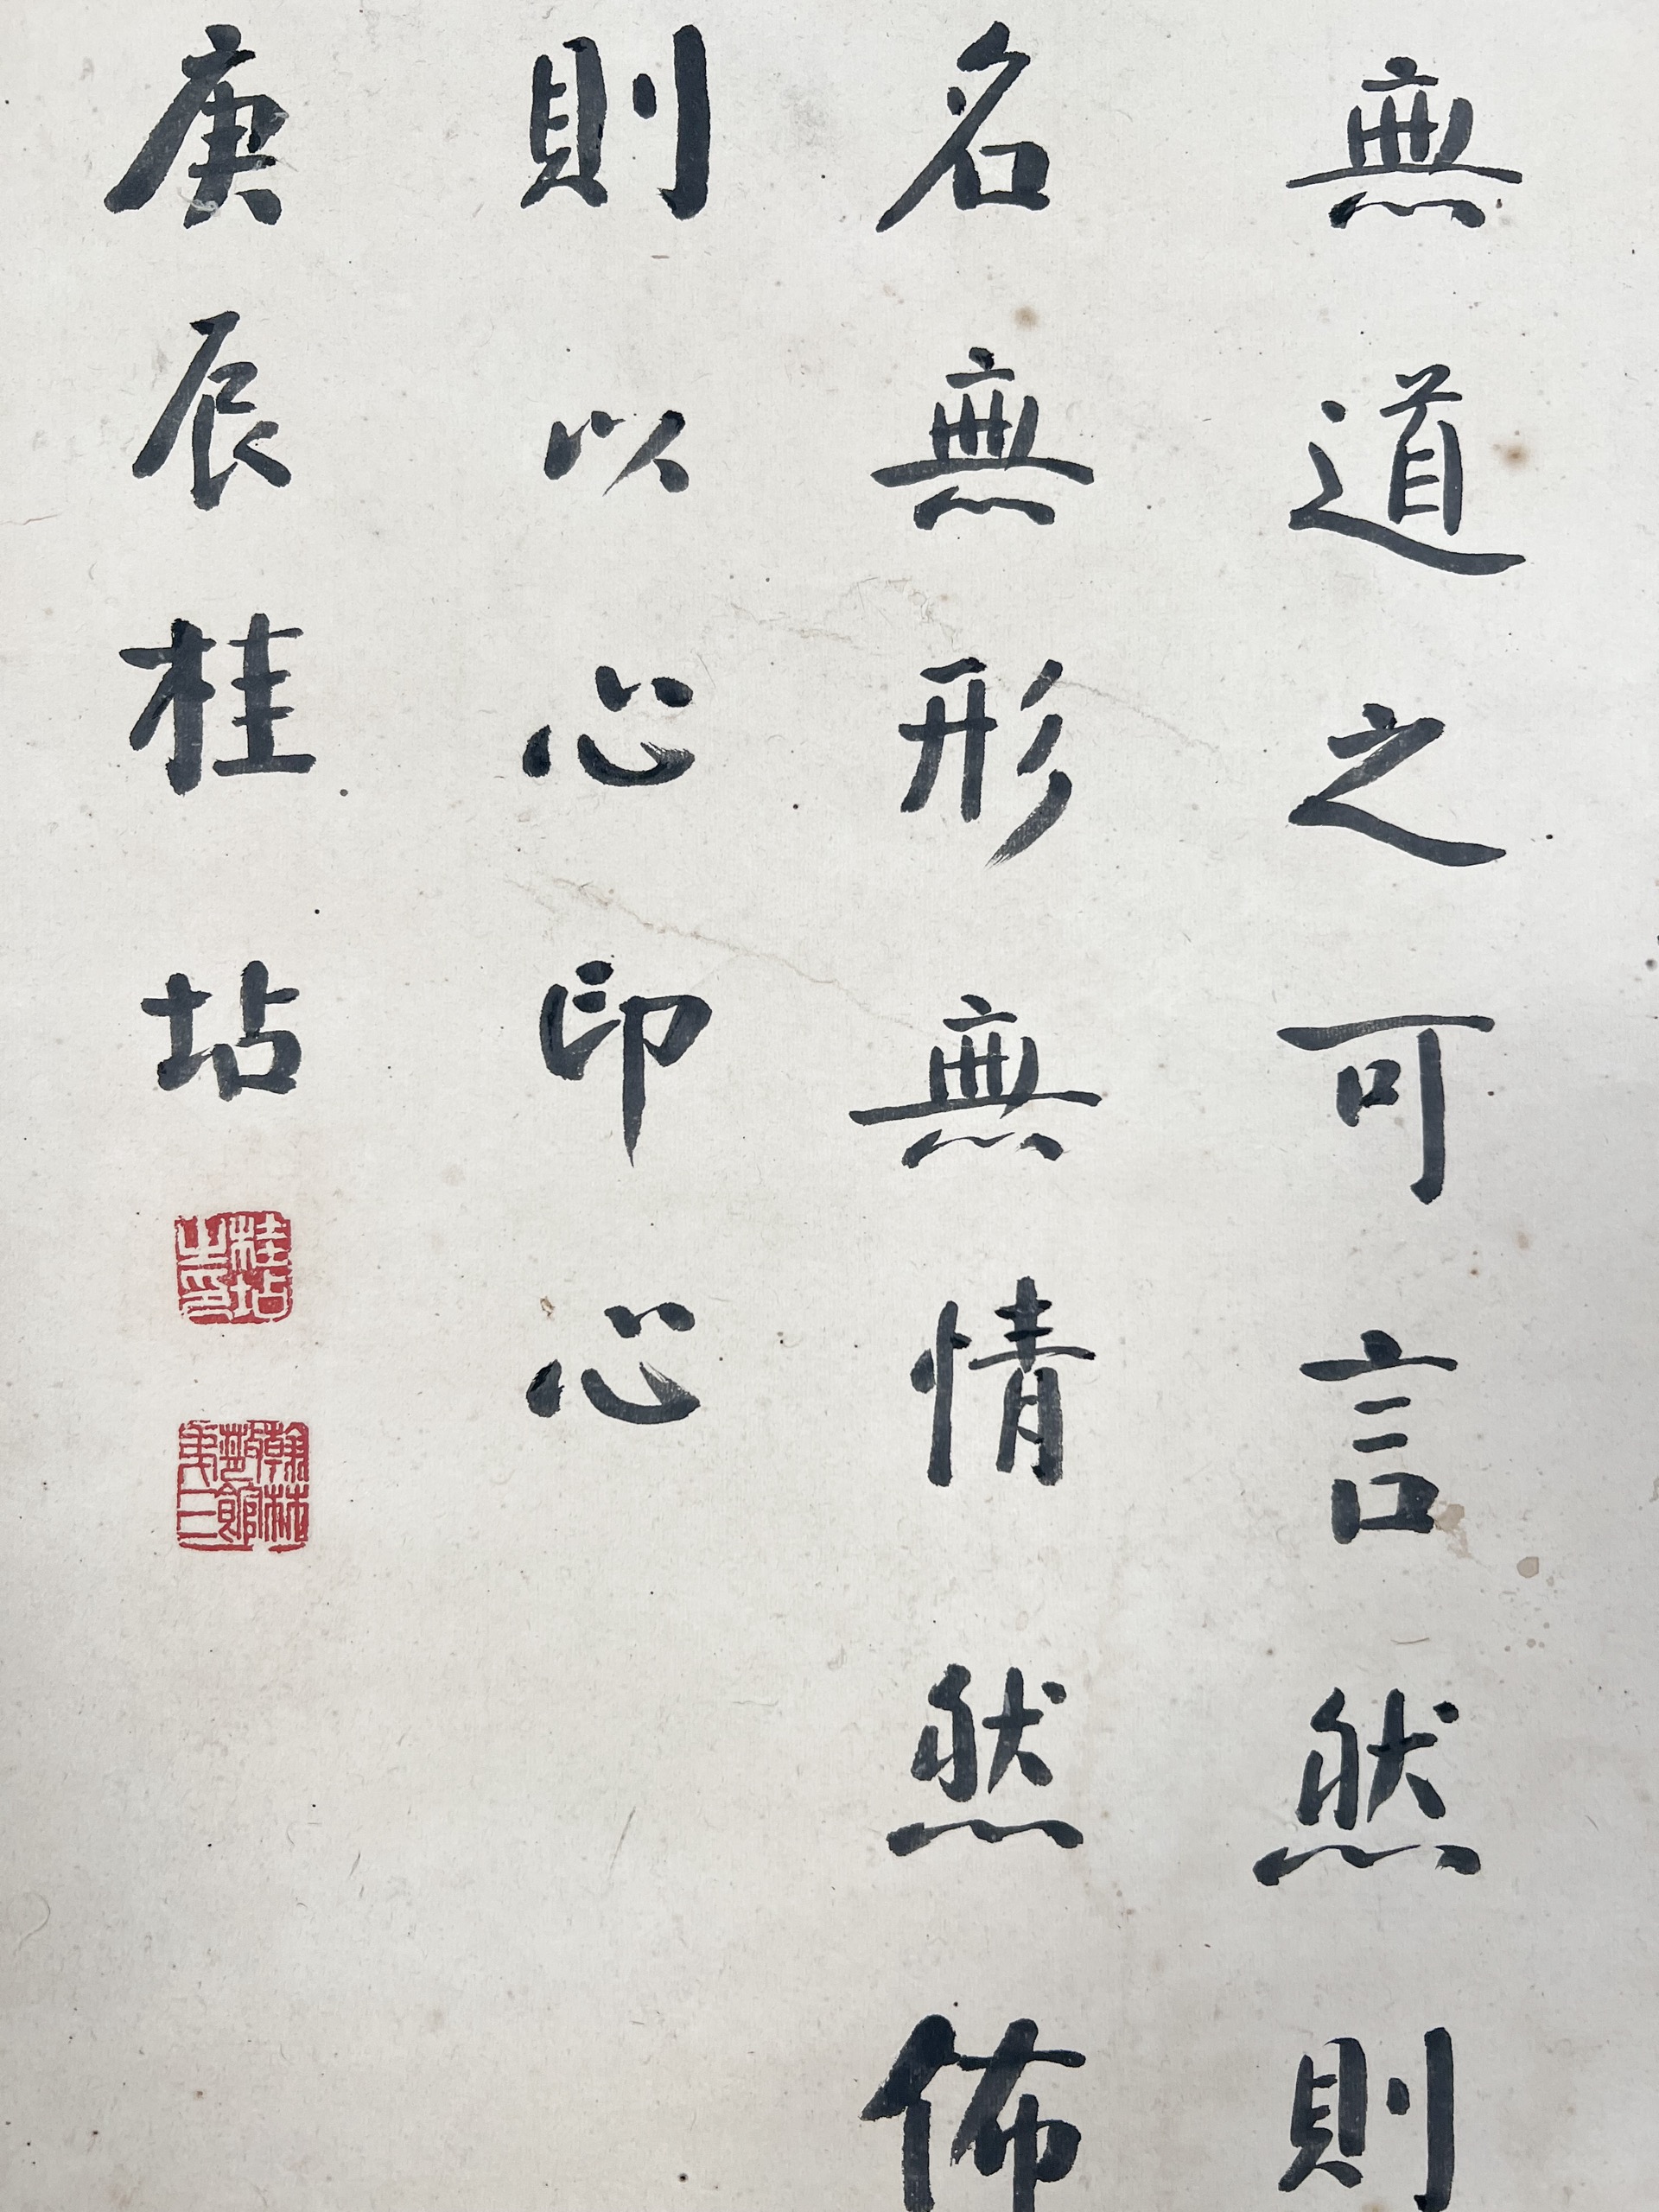 無道之可言然則
名無形無情然佈
則以心印心
庚辰桂坫
桂坫之印
翰林